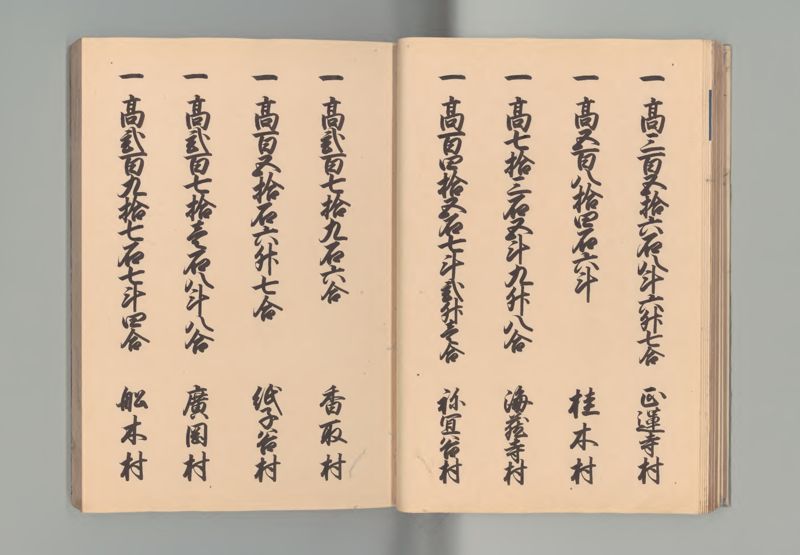 一 高三百五拾六石八斗六升七合 正運寺村
一 高五百八拾四石六斗 桂木村
一 高七拾三石五斗九升八合 海蔵寺村
一 高百四拾五石七斗弐升壱合 祢宜谷村
一 高弐百七拾九石六合 香取村
一 高百五拾石六升七合 紙子谷村
一 高弐百七拾壱石八斗八合 廣岡村
一 高弐百九拾七石七斗四合 船木村